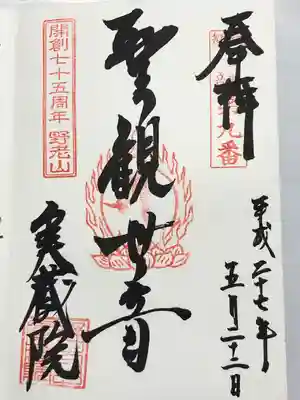 奉拝
九番
平成二十七年
五月二十二日
聖観世音
開創七十五周年 野老山
実蔵院